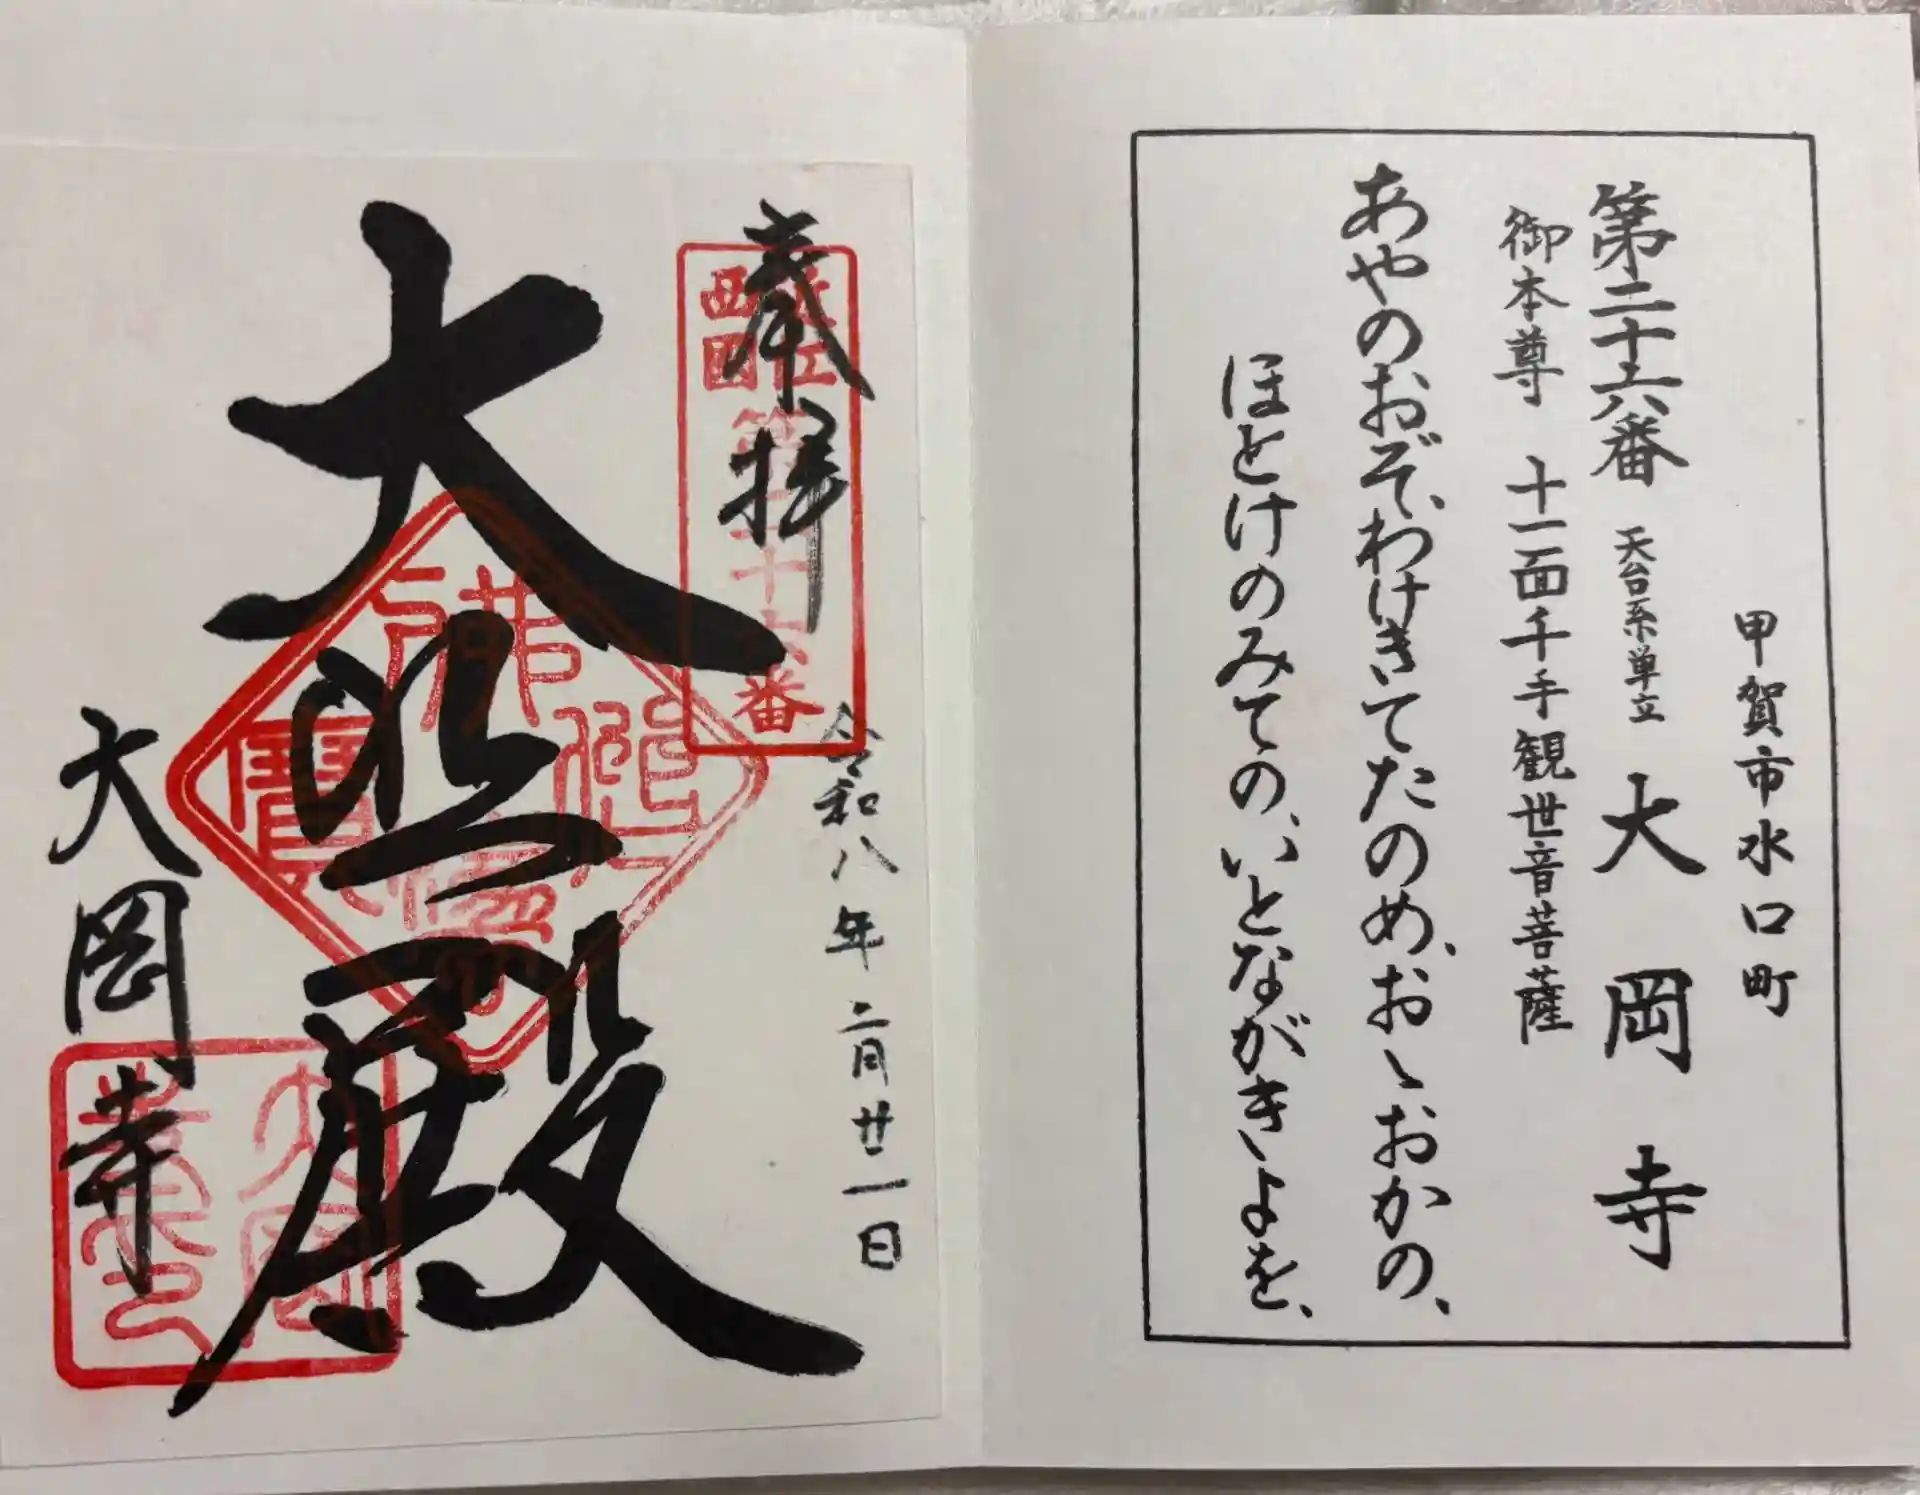 甲賀市水口町
第二十六番 天台系単立 大岡寺
御本尊 十一面千手観世音菩薩
あやのおぞ、わけきてたのめ、おゝおかの、
ほとけのみての、いとながき、よを、
奉拝
近江
西国
第二十六番
令和八年二月廿一日
大悲殿
佛
寶
大岡寺
大岡